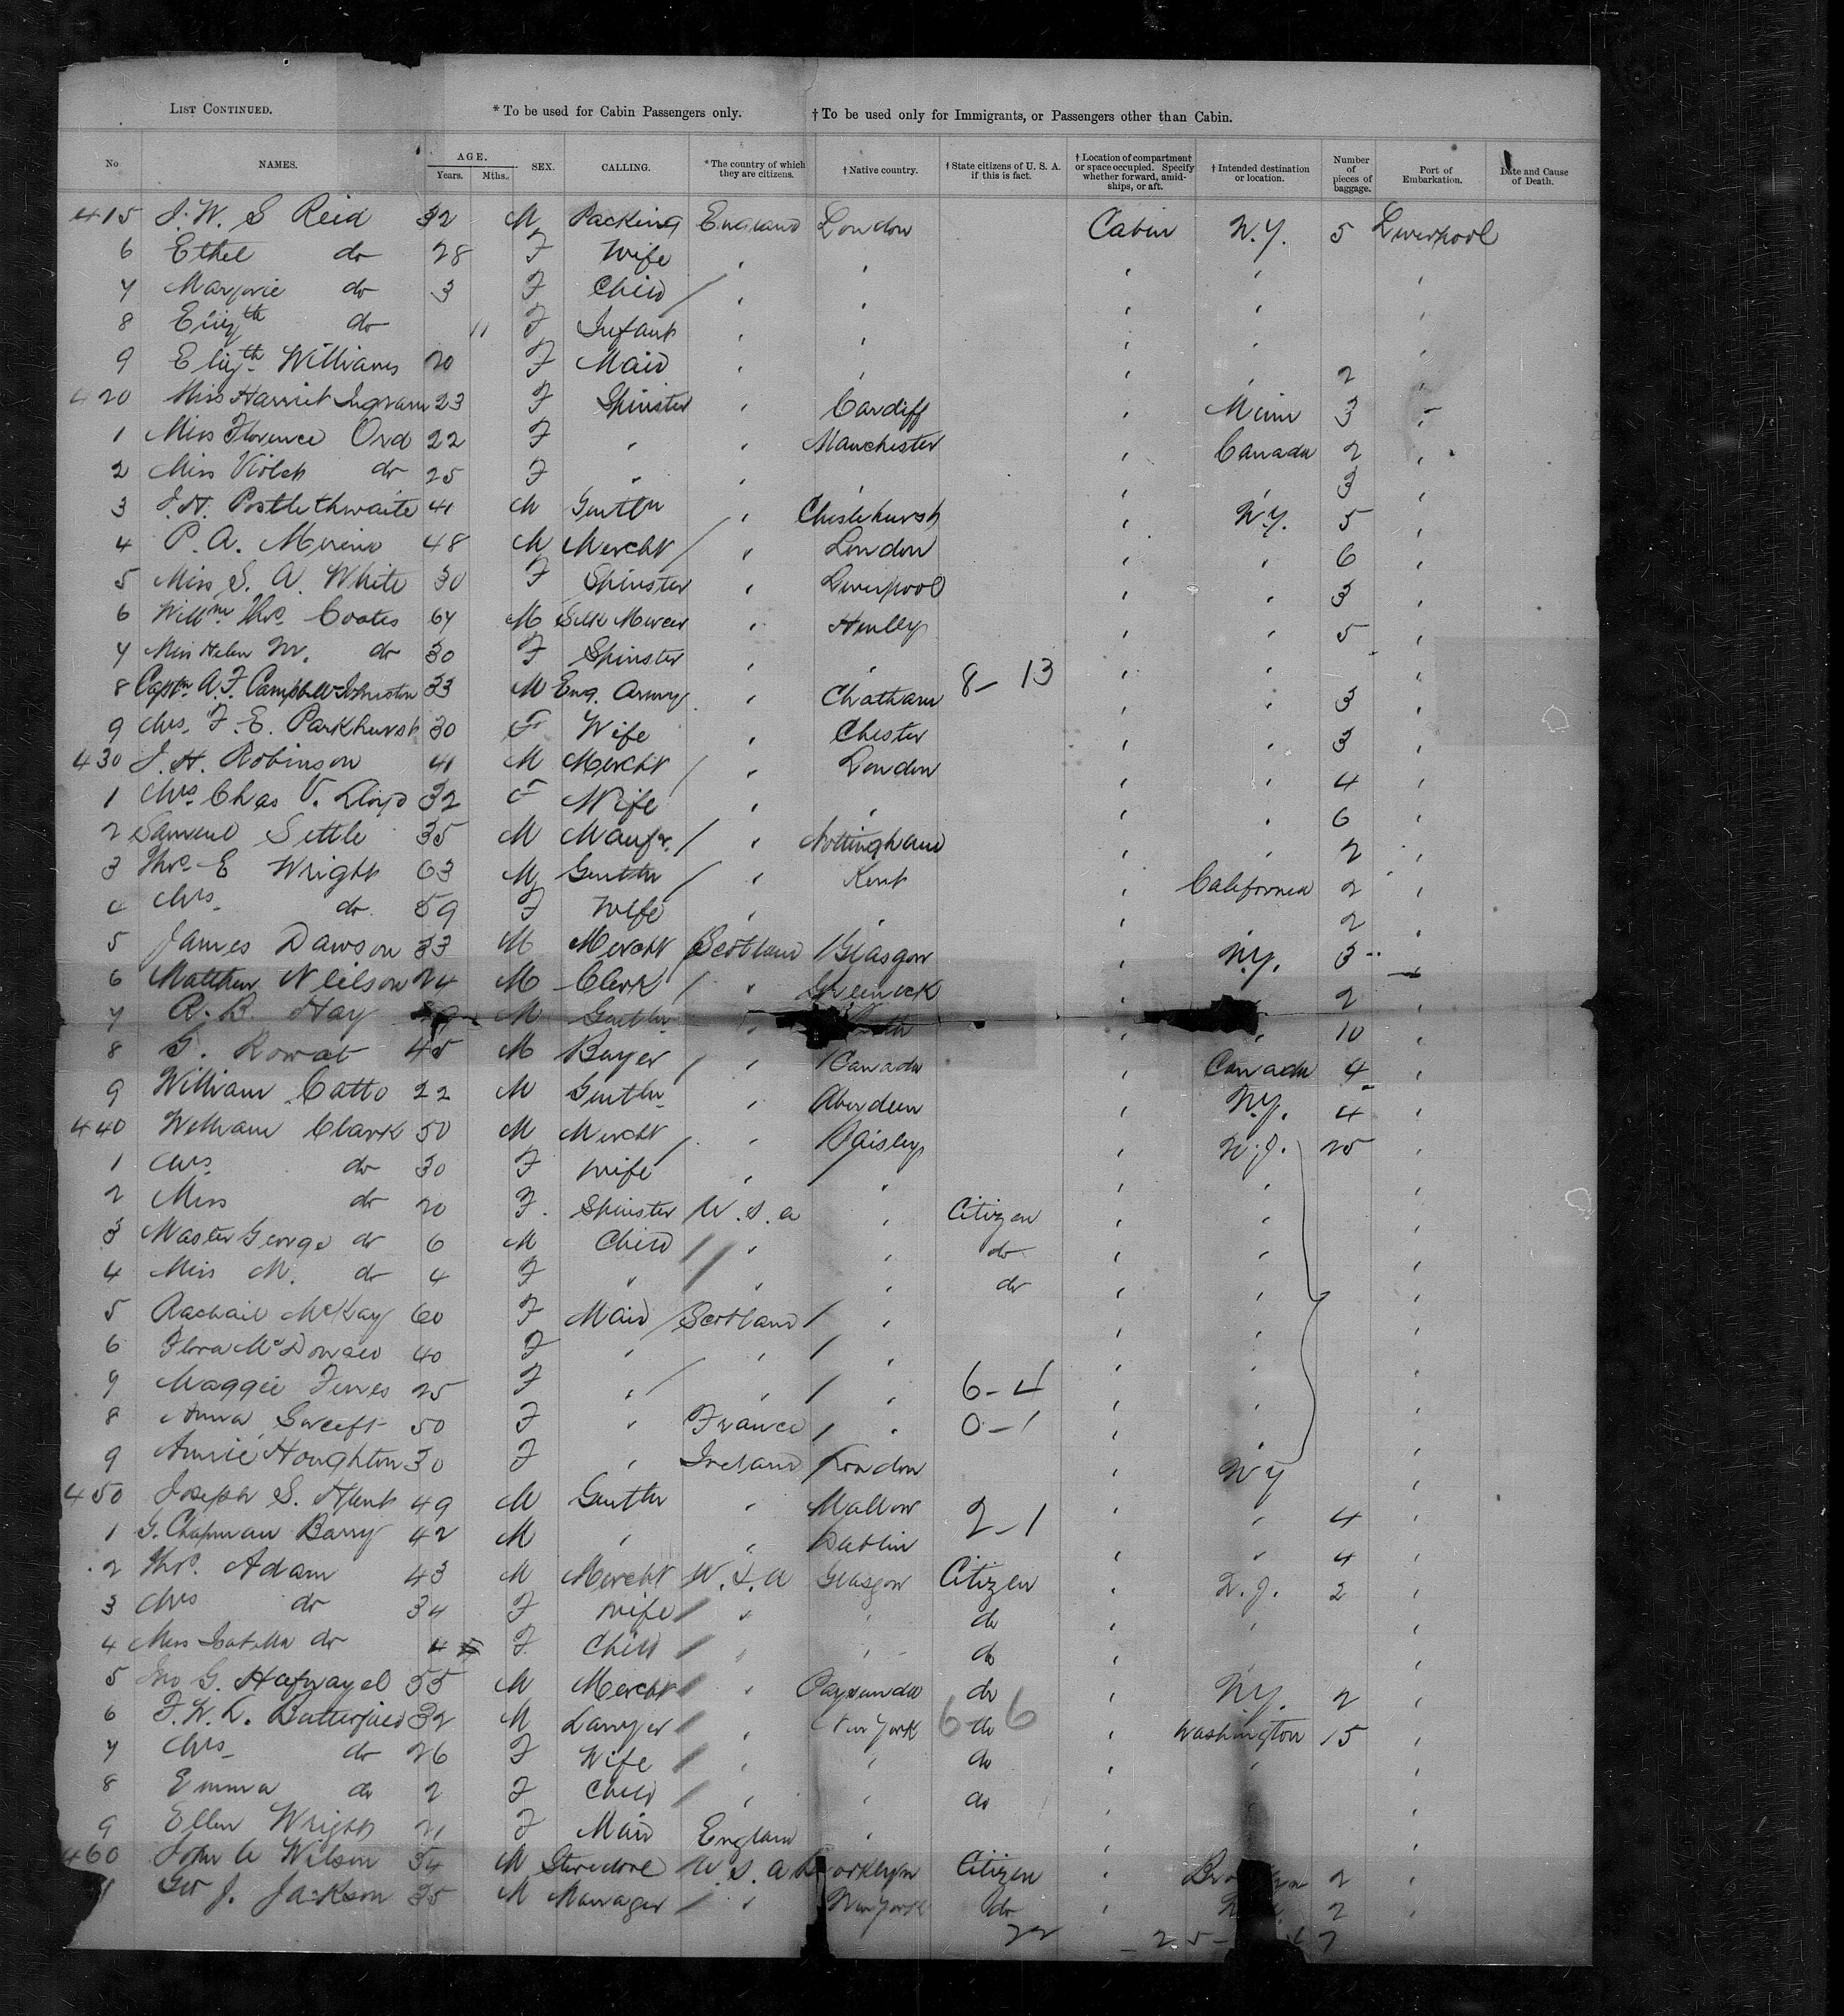 LIST CONTINUED. * To be used for Cabin Passengers only. † To be used only for Immigrants, or Passengers other than Cabin.
No. NAMES. AGE. Years. Mths. SEX. CALLING. * The country of which they are citizens. † Native country. † State citizens of U. S. A. if this is fact. † Location of compartment or space occupied. Specify whether forward, amidships, or aft. † Intended destination or location. Number of pieces of baggage. Port of Embarkation. Date and Cause of Death.
415 J. W. S Reid 32 M Packing England London Cabin N.Y. 5 Liverpool
6 Ethel do 28 F Wife " " " " "
7 Marjorie do 3 F Child / " " " " "
8 Elizth do 11 F Infant " " " " "
9 Elizth Williams 20 F Maid " " " " 2 "
420 Miss Harriet Ingram 23 F Spinster " Cardiff " Minn 3 "
1 Miss Florence Ord 22 F " " Manchester " Canada 2 "
2 Miss Violet do 25 F " " " " " 3 "
3 J. H. Postlethwaite 41 M Gentln " Chislehursh " N.Y. 5 "
4 P. A. 48 M Mercht / " London " " 6 "
5 Miss S. A. White 30 F Spinster " Liverpool " " 3 "
6 Willm Thos. Coates 64 M Silk Mercer " " " 5 "
7 Miss Helen M. do 30 F Spinster " " 8-13 " " "
8 Captn A. F. Campbell-Johnston 33 M Eng. Army " Chatham " " 3 "
9 Mrs. F. E. Parkhursh 30 F Wife " Chester " " 3 "
430 J. H. Robinson 41 M Mercht / " London " " 4 "
1 Mrs. Chas V. Lloyd 32 F Wife " " " " 6 "
2 Samuel Settle 35 M Manfr. / " Nottingham " " 2 "
3 Thos E Wright 63 M Gentln / " Kent " California 2 "
4 Mrs. do 59 F Wife " " " 2 "
5 James Dawson 33 M Mercht Scotland Glasgow " N.Y. 3 "
6 Matthew Neilson 24 M Clerk / " Greenock " 2 "
7 R. B. Hay M Gentln " " " 10 "
8 G. Rowat 45 M Buyer / " Canada " Canada 4 "
9 William Catto 22 M Gentln " Aberdeen " N.Y. 4 "
440 William Clark 50 M Mercht / " Paisley " N.J. 25 "
1 Mrs. do 30 F Wife " " " " "
2 Miss do 20 F. Spinster U.S.a " Citizen " " "
3 Master George do 6 M Child / " " do " " "
4 Miss M. do 4 F " " " do " " "
5 Rachail McKay 60 F Maid / Scotland / " " " "
6 Flora McDonald 40 F " " / " " " "
7 Maggie 25 F " / " / " 6-4 " " "
8 Anna 50 F " France / " 0-1 " "
9 Annie Houghton 30 F " Ireland London " NY "
450 Joseph S. 49 M Gentln " Mallow 2-1 " " 4 "
1 G. Chapman Barry 42 M " " Dublin " " 4 "
2 Thos. Adam 43 M Mercht U.S.A Glasgow Citizen " N.J. 2 "
3 Mrs do 34 F Wife / " " do " " "
4 Miss Isabella do 4 F Child / " " do " "
5 Jno G. 55 M Mercht / " Paysandu do " N.Y. 2 "
6 F. W. L. Butterfield 32 M Lawyer / " New York 6-6 do " Washington 15 "
7 Mrs do 26 F Wife / " " do " " "
8 Emma do 2 F Child / " " do " "
9 Ellen Wright 21 F Maid England " " "
460 John W Wilson 54 M Stevedore U.S.a Citizen " 2 "
Geo J. Jackson 35 M Manager / " New York do " 2 "
22 25-